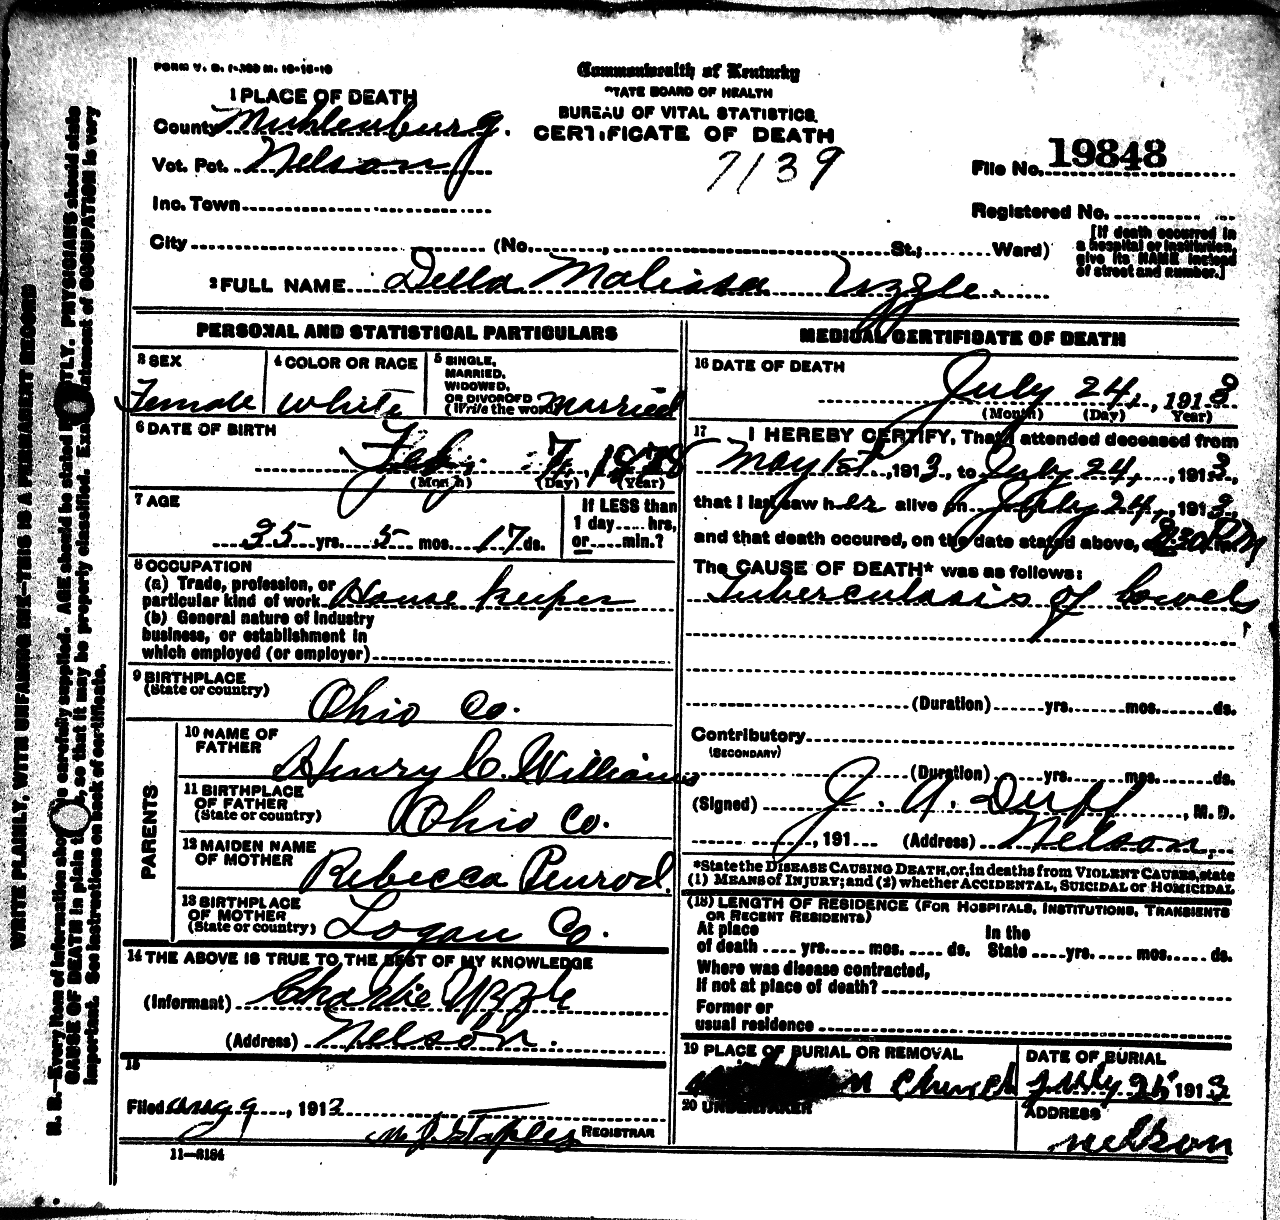 FORM V. S. 1-100 M. 10-18-10
Commonwealth of Kentucky
STATE BOARD OF HEALTH
BUREAU OF VITAL STATISTICS
CERTIFICATE OF DEATH
7139
1 PLACE OF DEATH
County Muhlenburg.
Vot. Pct. Nelson
Inc. Town
City (No. , St.; Ward)
File No. 19848
Registered No.
[If death occurred in
a hospital or institution,
give its NAME instead
of street and number.]
2 FULL NAME Della Malissa Uzzle.
PERSONAL AND STATISTICAL PARTICULARS
3 SEX
Female
4 COLOR OR RACE
White
5 SINGLE,
MARRIED,
WIDOWED,
OR DIVORCED
(Write the word) Married
6 DATE OF BIRTH
Feby. 7, 1878
(Month) (Day) (Year)
7 AGE
35 yrs. 5 mos. 17 ds.
If LESS than
1 day .... hrs,
or .... min.?
8 OCCUPATION
(a) Trade, profession, or
particular kind of work House keeper
(b) General nature of industry
business, or establishment in
which employed (or employer)
9 BIRTHPLACE
(State or country)
Ohio Co.
PARENTS
10 NAME OF
FATHER
Henry C. Williams
11 BIRTHPLACE
OF FATHER
(State or country)
Ohio Co.
12 MAIDEN NAME
OF MOTHER
Rebecca Penrod.
13 BIRTHPLACE
OF MOTHER
(State or country)
Logan Co.
14 THE ABOVE IS TRUE TO THE BEST OF MY KNOWLEDGE
(Informant) Charlie Uzzle
(Address) Nelson.
15
Filed Aug 9, 1913
Staples REGISTRAR
11—8184
MEDICAL CERTIFICATE OF DEATH
16 DATE OF DEATH
July 24, 1913
(Month) (Day) (Year)
17 I HEREBY CERTIFY, That I attended deceased from
May 1st, 1913, to July 24, 1913,
that I last saw her alive on July 24, 1913,
and that death occured, on the date stated above,
The CAUSE OF DEATH* was as follows:
Tuberculosis of bowels
(Duration) yrs. mos. ds.
Contributory
(SECONDARY)
(Duration) yrs. mos. ds.
(Signed) Duff, M. D.
, 191 (Address) Nelson,
*State the DISEASE CAUSING DEATH, or, in deaths from VIOLENT CAUSES, state
(1) MEANS of INJURY; and (2) whether ACCIDENTAL, SUICIDAL or HOMICIDAL
(18) LENGTH OF RESIDENCE (FOR HOSPITALS, INSTITUTIONS, TRANSIENTS
OR RECENT RESIDENTS)
At place
of death .... yrs. mos. ds.
In the
State yrs. mos. ds.
Where was disease contracted,
If not at place of death?
Former or
usual residence
19 PLACE OF BURIAL OR REMOVAL
Church
DATE OF BURIAL
July 25 1913
20 UNDERTAKER
ADDRESS
Nelson
WRITE PLAINLY, WITH UNFADING INK—THIS IS A PERMANENT RECORD
N. B.—Every item of information should be carefully supplied. AGE should be stated EXACTLY. PHYSICIANS should state
CAUSE OF DEATH in plain terms, so that it may be properly classified. Exact statement of OCCUPATION is very
important. See instructions on back of certificate.